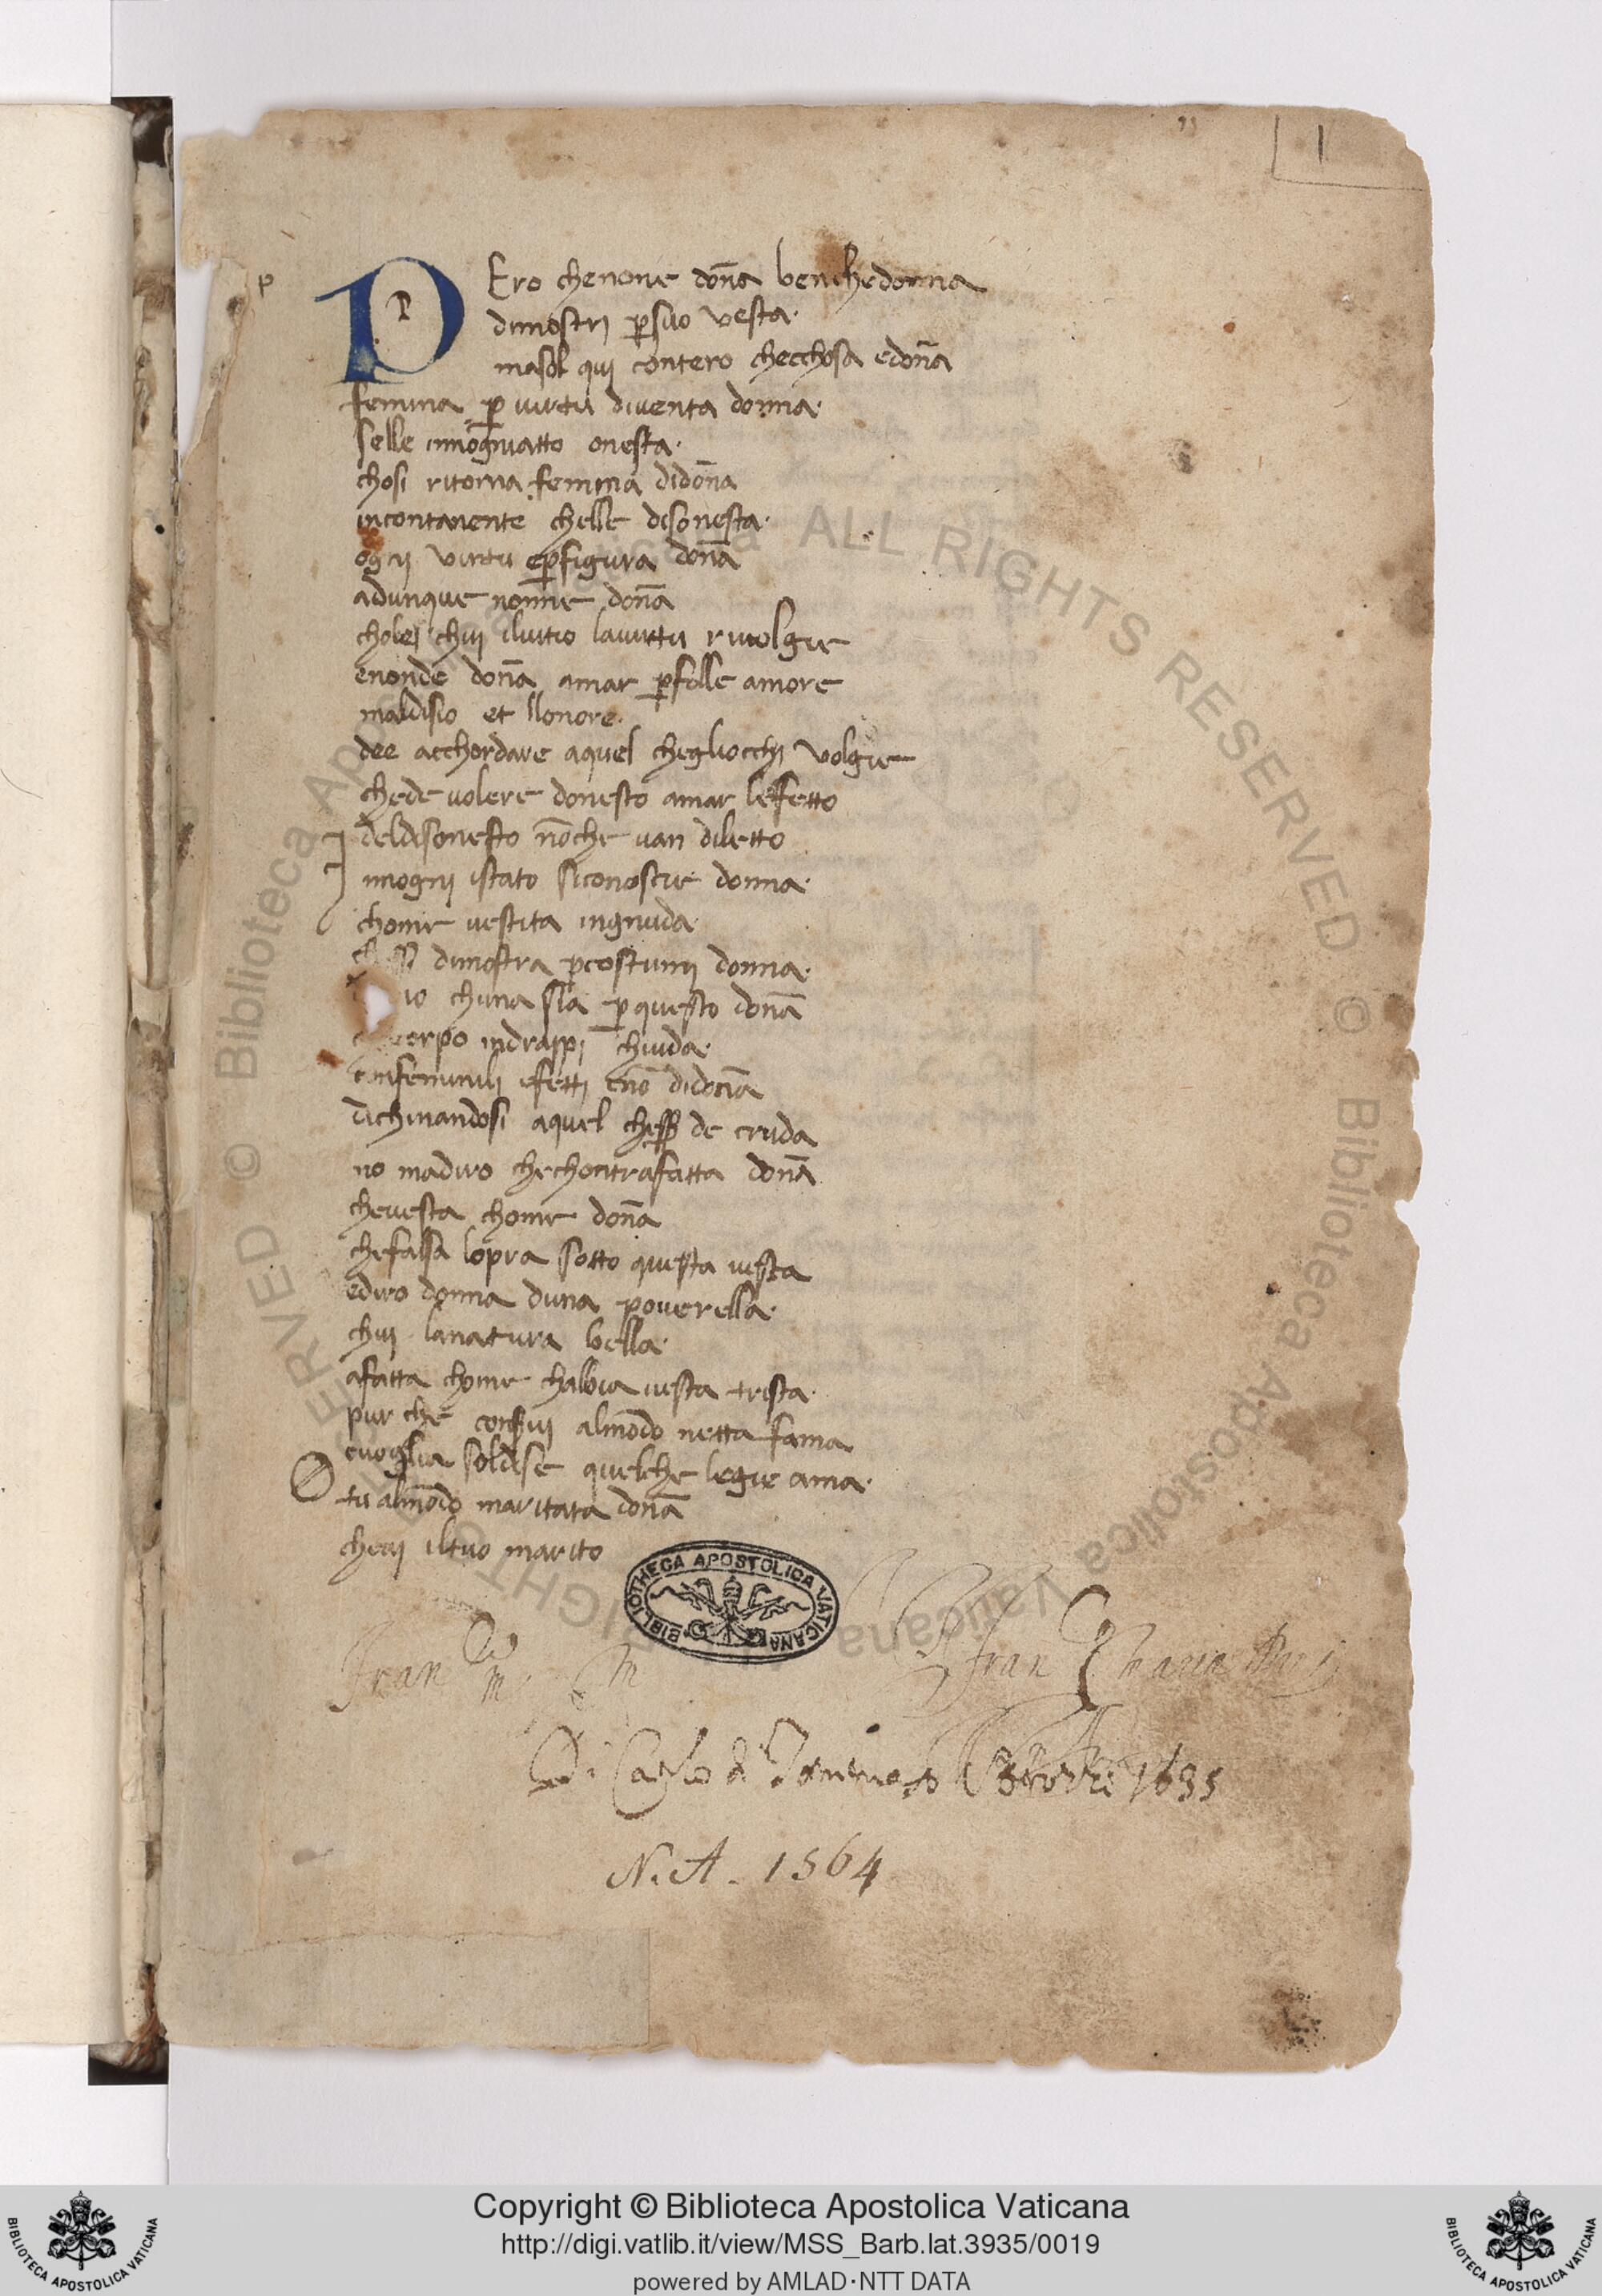 1
p
PEro chenone dona benchedonna
dimostri p suo vesta.
masol qui contero checchosa edona
femina p virtu diventa donna.
selle inogniatto onesta.
chosi ritorna femina didona
incontanente chelle disonesta.
ogni virtu epfigura dona
adunque nonne dona
cholei chui iluitio lauirtu riuolgie
enonde dona amar pfolle amore
maldisio et llonore.
dee acchordare aquel chegliocchi volgie
chede uolere donesto amar lefetto
deldisonesto noche uan diletto
Inogni istato siconoscie donna.
chome uestita ingnuda.
dimostra pcostumi donna.
chuna sia pquesto dona
indrappi chiuda.
efetti eno didona
dichinandosi aquel chessp de cruda
no madiro chechontrafatta dona
cheuesta chome dona
chefalsa lopra sotto questa uesta
ediro donna duna pouerella.
chui lanatura bella.
afatta chome chabbia uesta trista.
pur che conserui almodo netta fama
euoglia soldise quelche legie ama.
O tu almodo maritata dona
cheai iltuo marito
BIBLIOTHECA APOSTOLICA VATICANA
Fran
Fran Maria
Di Carlo di Tommaso Strozzi 1635
N. A. 1564
© Biblioteca Apostolica Vaticana ALL RIGHTS RESERVED © Biblioteca Apostolica Vaticana
Copyright © Biblioteca Apostolica Vaticana
http://digi.vatlib.it/view/MSS_Barb.lat.3935/0019
powered by AMLAD·NTT DATA
BIBLIOTECA APOSTOLICA VATICANA
BIBLIOTECA APOSTOLICA VATICANA